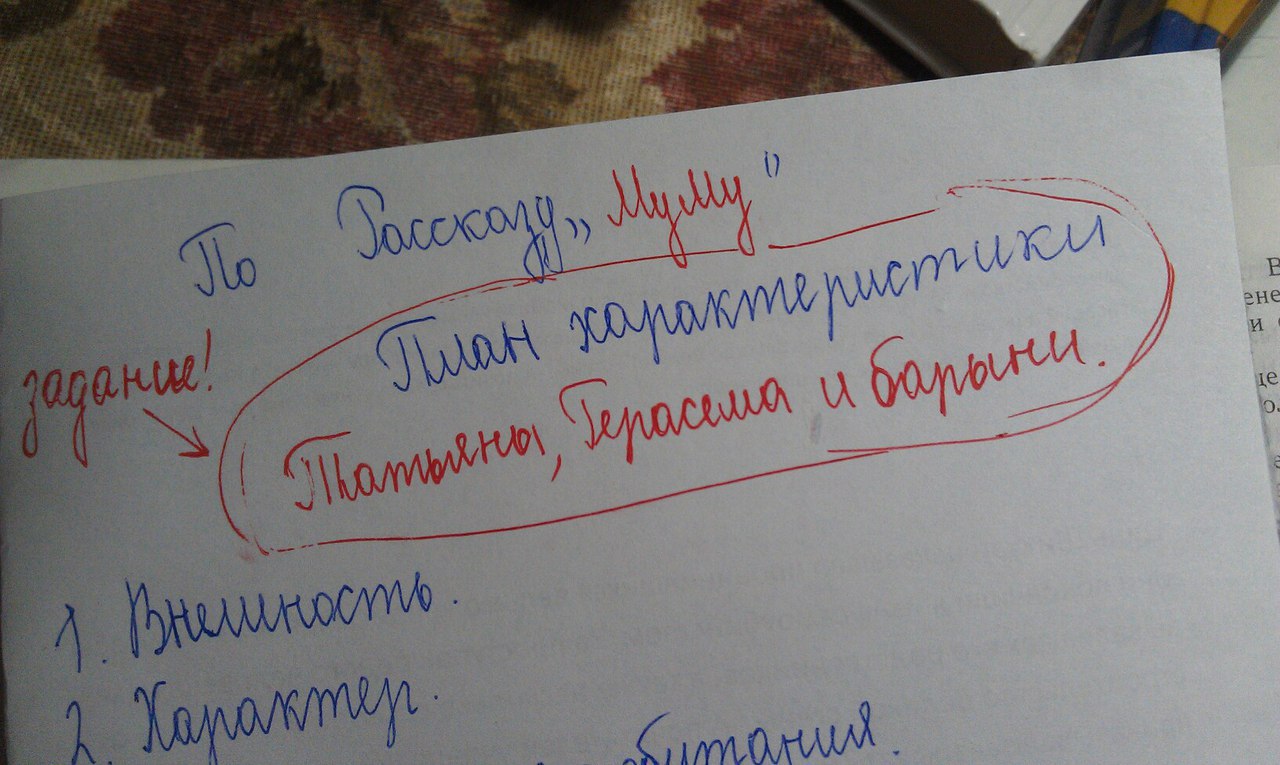 По Рассказу „МуМу"
План характеристики
задание!
Татьяны, Герасема и барыни.
1. Внешность.
2. Характер.
обитания.
В
ене
и